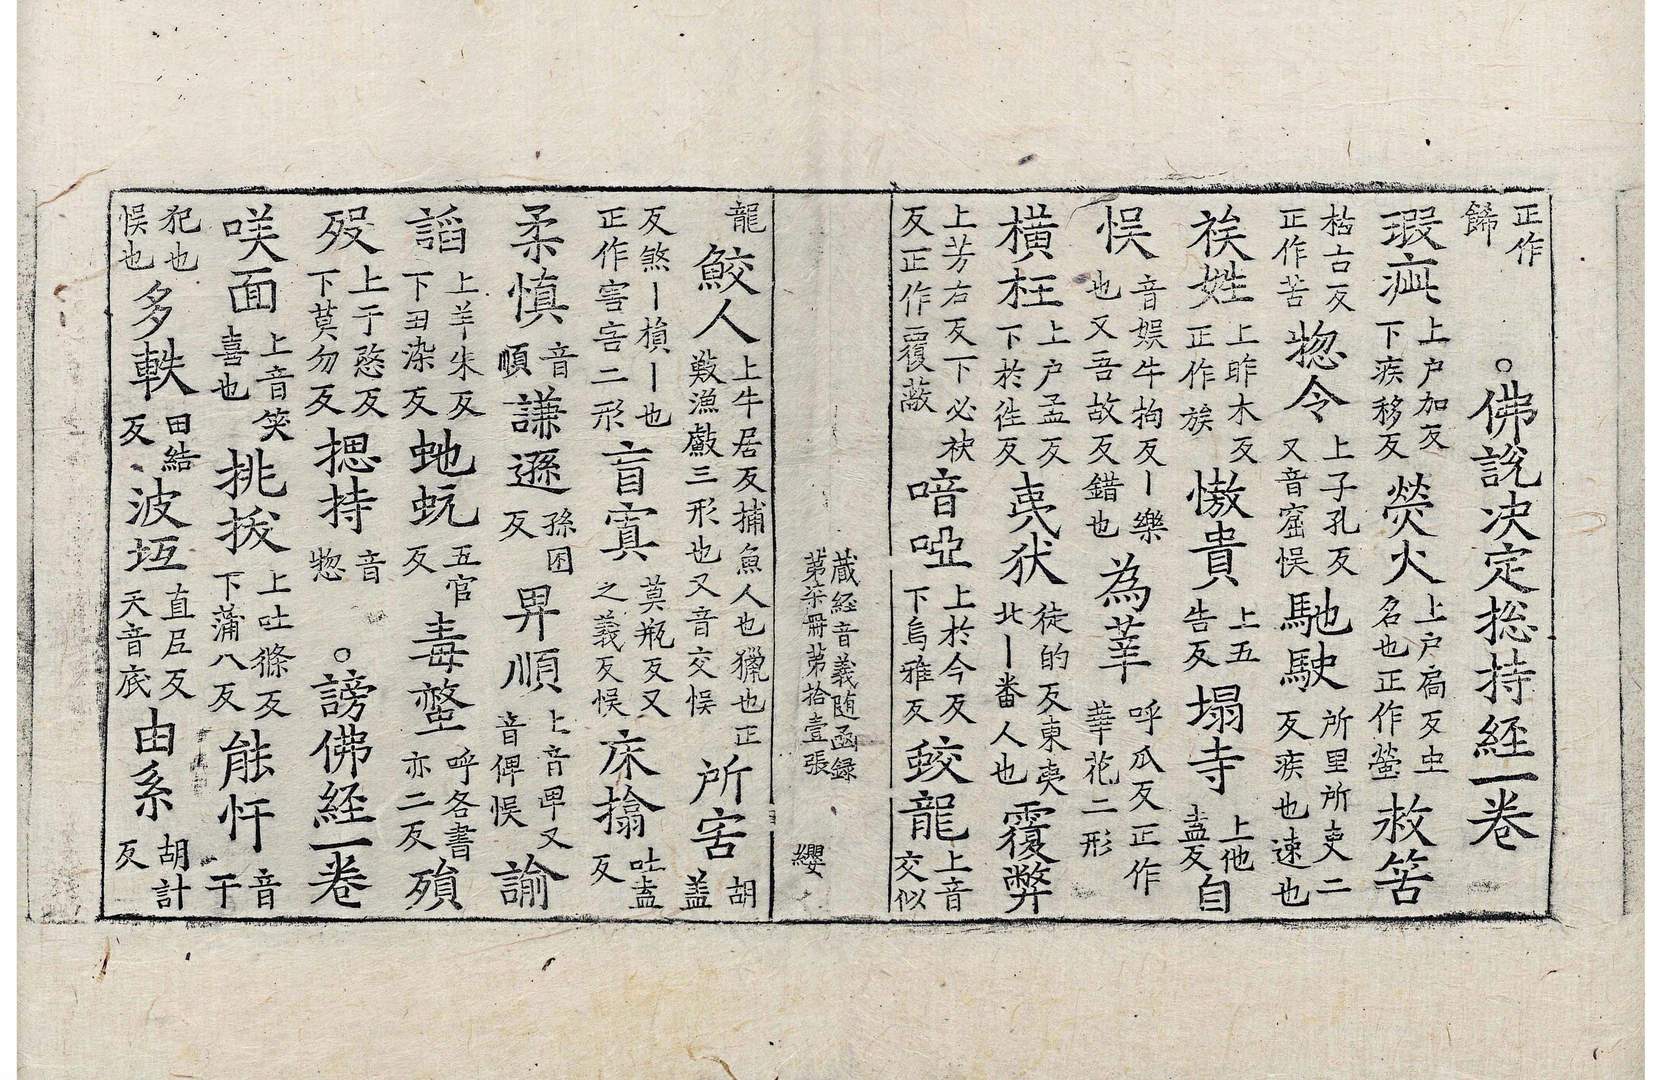 正作歸 。佛說决定揔持經一卷
瑕疵上户加反下疾移反 熒火上户扃反虫名也正作螢 赦筶
枯古反正作苦 揔令上子孔反又音窓悮 馳駛所里所吏二反疾也速也
䘏姓上昨木反正作族 憿貴上五告反 塌寺上他盍反 自
悮音娱牛拘反丨樂也又吾故反錯也 為䔢呼瓜反正作華花二形
橫枉上户孟反下於往反 夷狄徒的反東夷北丨番人也 覆弊
上芳右反下必袂反正作覆蔽 喑啞上於今反下烏雅反 蛟龍上音交似
藏經音義随函録 第柒冊第拾壹張 纓
龍 鮫人上牛居反捕魚人也獵也正作漁䱷三形也又音交悮 所害胡盖
反煞丨損丨也正作害㝬二形 盲寘莫瓶反又之義反悮 床㩉吐盍反
柔慎音順 謙遜孫困反 畀順上音卑又音俾悮 諭
謟上羊朱反下丑染反 虵蚖五官反 毒螫呼各書亦二反 殞
歿上于愍反下莫勿反 摁持音惣 。謗佛經一卷
咲面上音笑喜也 挑拔上吐條反下蒲八反 能忓音干
犯也悮也 多軼田結反 波坘直尼反天音底 由系胡計反